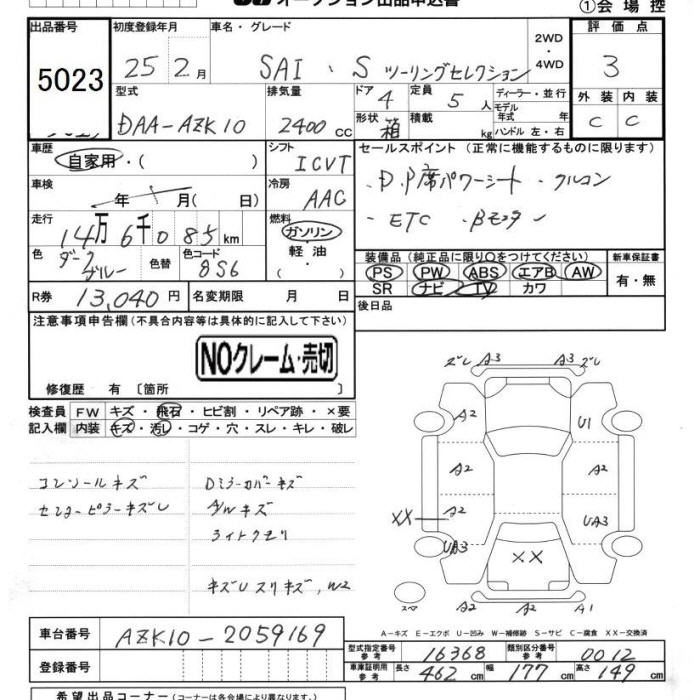 オークション出品申込書
①会場控
出品番号 5023
初度登録年月 25 2月
車名・グレード SAI・S ツーリングセレクション
2WD・4WD
評価点 3
型式 DAA-AZK10
排気量 2400cc
ドア 4
定員 5人
形状 箱
積載 kg
ディーラー・並行
モデル年式 年
ハンドル 左・右
外装 C 内装 C
車歴 自家用・( )
シフト ICVT
セールスポイント (正常に機能するものに限ります)
・D.P席パワーシート ・クルコン
・ETC ・Bモニター
車検 年 月 (日)
冷房 AAC
走行 14万6千085km
燃料 ガソリン・軽油・( )
色 ダークブルー
色替
色コード 8S6
装備品 (純正品に限り○をつけてください)
PS PW ABS エアB AW
SR ナビ TV カワ
新車保証書 有・無
R券 13,040円
名変期限 月 日
後日品
注意事項申告欄 (不具合内容等は具体的に記入して下さい)
NOクレーム・売切
修復歴 有 〔箇所 〕
検査員記入欄
FW キズ・飛石・ヒビ割・リペア跡・×要
内装 キズ・汚レ・コゲ・穴・スレ・キレ・破レ
コンソールキズ
センターピラーキズU
Dミラーカバーキズ
A/Wキズ
ライトクモリ
キズUスリキズ、W2
ズレ A3 A3 ズレ
A2 U1
A2 A2
XX A2 UA3
UA3 XX
スペア A2 A2 A1
A-キズ E-エクボ U-凹み W-補修跡 S-サビ C-腐食 XX-交換済
車台番号 AZK10-2059169
登録番号
型式指定番号 参考 16368
類別区分番号 参考 0012
車庫証明用 参考 長さ 462cm 幅 177cm 高さ 149cm
希望出品コーナー (コーナーは各会場により異なります。)